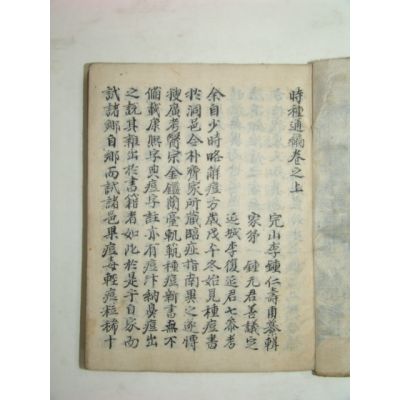 時種通編卷之上
完山李鍾仁壽甫纂輯
家弟 鍾九君善議定
延城李復延君七參考
余自少時略解痘方歲戊午冬始見種痘書
於洞邑合朴齊家所藏臨症指南異之遂博
搜廣考醫宗金鑑蘭臺軌範種痘新書無不
備載康熙字典痘字註亦有痘汁納鼻痘出
之說其雜出於書籍者如此於是于自家而
試諸鄉自鄉而試諸邑果痘每輕痘粒稀十